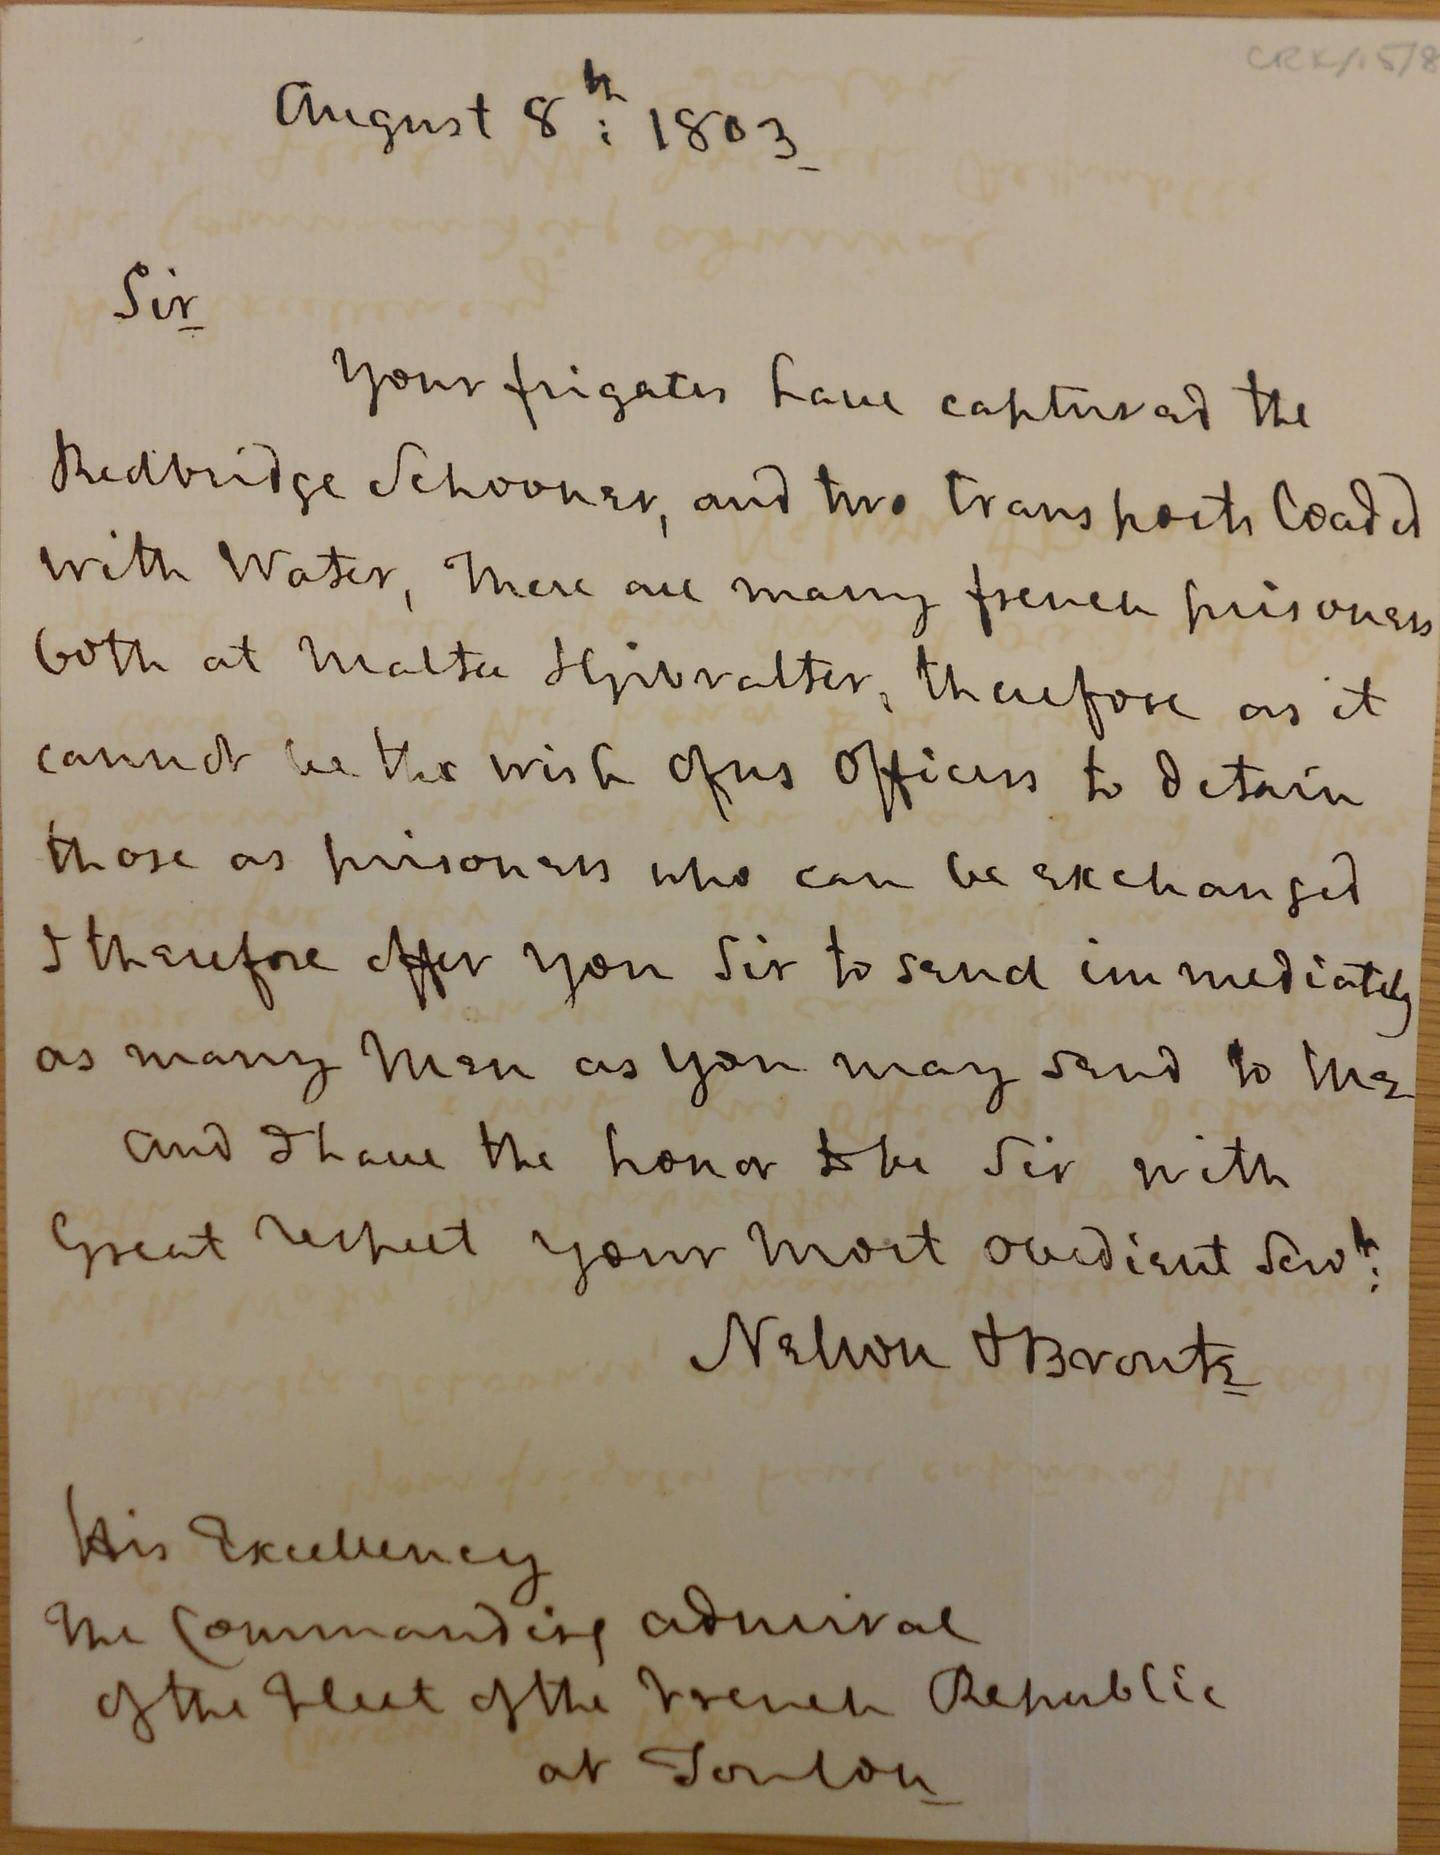 CRK/15/8
August 8th: 1803
Sir
Your frigates have captured the
Redbridge Schooner, and two transports loaded
with Water, There are many french prisoners
both at Malta & Gibralter, therefore as it
cannot be the wish of us Officers to detain
those as prisoners who can be exchanged
I therefore offer you Sir to send immediately
as many Men as you may send to me
and I have the honor to be Sir with
Great respect your most obedient Servt:
Nelson & Bronte
His Excellency
The Commanding admiral
of the Fleet of the French Republic
at Toulon